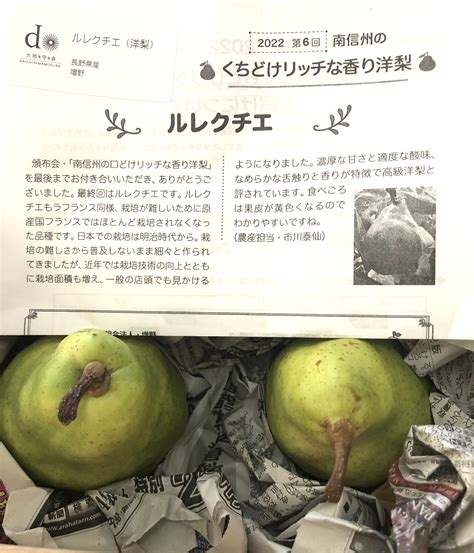 ルレクチエ（洋梨）
大地を守る会
長野県産
増野
2022 第6回 南信州の
くちどけリッチな香り洋梨
ルレクチエ
頒布会・「南信州の口どけリッチな香り洋梨」
を最後までお付き合いいただき、ありがとうご
ざいました。最終回はルレクチエです。ルレク
チエもラフランス同様、栽培が難しいために原
産国フランスではほとんど栽培されなくなっ
た品種です。日本での栽培は明治時代から。栽
培の難しさから普及しないまま細々と作られ
てきましたが、近年では栽培技術の向上ととも
に栽培面積も増え、一般の店頭でも見かける
ようになりました。濃厚な甘さと適度な酸味、
なめらかな舌触りと香りが特徴で高級洋梨と
評されています。食べごろ
は果皮が黄色くなるので
わかりやすいですね。
（農産担当・市川泰仙）